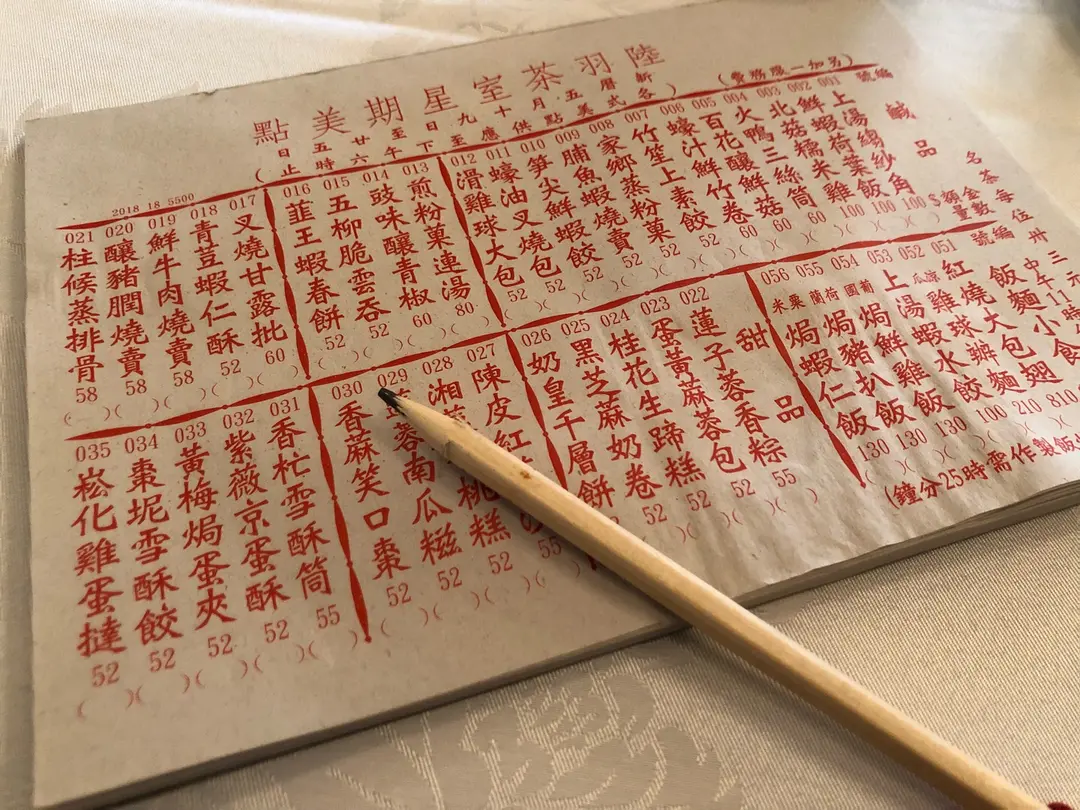 陸羽茶室星期美點
新曆五月十九日至廿五日
(各式美點供應至下午六時止
(另加一服務費)
編號 鹹品 名 金額$ 數量
茶每位卅三元
001 上湯縐紗角 100
002 鮮蝦荷葉飯 100
003 北菇糯米雞 100
004 火鴨三絲筒 60
005 百花釀鮮菇 60
006 蠔汁鮮竹卷 60
007 竹笙上素餃 52
008 家鄉蒸粉菓 52
009 脯魚蝦燒賣 52
010 筍尖鮮蝦餃 52
011 蠔油叉燒包 52
012 滑雞球大包 52
013 煎粉菓連湯 80
014 豉味釀青椒 60
015 五柳脆雲吞 52
016 韮王蝦春餅 52
017 叉燒甘露批 60
018 青荳蝦仁酥 52
019 鮮牛肉燒賣 58
020 釀豬膶燒賣 58
021 柱候蒸排骨 58
2018 18 5500
編號 飯麵小食
中午11時
051 紅燒大包翅 810
052 雞球辦麵 210
053 上湯蝦水餃 100
054 葡國焗鮮雞飯 130
055 荷蘭焗豬扒飯 130
056 粟米焗蝦仁飯 130
製作需時25分鐘)
甜品
022 蓮子蓉香粽 55
023 蛋黃蔴蓉包 52
024 桂花生蹄糕 52
025 黑芝蔴奶卷 52
026 奶皇千層餅
027 陳皮紅 55
028 湘 桃糕 52
029 蓉南瓜糍 52
030 香蔴笑口棗 52
031 香杧雪酥筒 55
032 紫薇京蛋酥 52
033 黃梅焗蛋夾 52
034 棗坭雪酥餃 52
035 崧化雞蛋撻 52